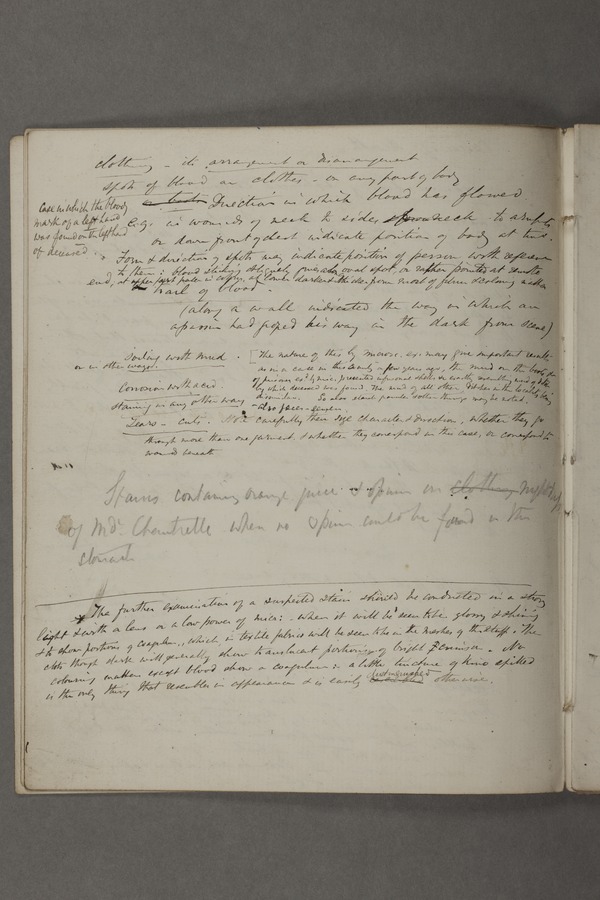 clothing - its arrangement or disarrangement
spots of blood on clothes - on any part of body
Direction in which blood has flowed
Case in which the bloody
mark of a left hand
was found on the left hand
of deceased
E.g. in wounds of neck to sides, neck to armpits
or down front of chest indicate position of body at time.
Form & direction of spots may indicate position of person with reference
to them: blood striking obliquely an oval spot, or rather pointed at one
end, at upper part paler in colour, at lower darkest
trail of blood.
(along a wall indicated the way in which an
assassin had groped his way in the dark from scene)
Soiling with mud.
or in other ways.
[The nature of this by microsc. exn. may give important results
as in a case in this County a few years ago, the mud on the boots
of prisoner presented
by which deceased was found. The mud of all other ditches in the locality being
dissimilar. So also stains powder & other things may be noted.
- also faeces -
Corrosion with acid.
Staining in any other way
Tears - Cuts. Note carefully their size character & direction, whether they go
through more than one garment, & whether they correspond in this case, or correspond to
wounds beneath
Stains containing orange juice & opium on clothing
of Md. Chantrelle when no opium could be found in the
stomach
* The further examination of a suspected stain should be conducted in a strong
light & with a lens or a low power of micr: - when it will be seen to be glossy & shining
& to show portions of coagulum, which in textile fabrics will be seen to be in the meshes of the stuff. The
clots though dark will generally show translucent portions of bright crimson. No
colouring matter except blood shows a coagulum & a little tincture of kino spilled
is the only thing that resembles in appearance & is easily distinguished otherwise.